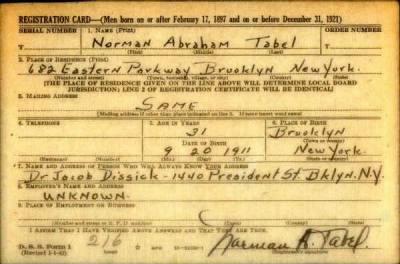 REGISTRATION CARD—(Men born on or after February 17, 1897 and on or before December 31, 1921)
SERIAL NUMBER 1. NAME (Print) ORDER NUMBER
Norman Abraham Tabel
(First) (Middle) (Last)
2. PLACE OF RESIDENCE (Print)
682 Eastern Parkway Brooklyn New York.
(Number and street) (Town, township, village, or city) (County) (State)
[THE PLACE OF RESIDENCE GIVEN ON THE LINE ABOVE WILL DETERMINE LOCAL BOARD
JURISDICTION; LINE 2 OF REGISTRATION CERTIFICATE WILL BE IDENTICAL]
3. MAILING ADDRESS
SAME
[Mailing address if other than place indicated on line 2. If same insert word same]
4. TELEPHONE 5. AGE IN YEARS 6. PLACE OF BIRTH
31 Brooklyn
DATE OF BIRTH (Town or county)
9 20 1911 New York.
(Mo.) (Day) (Yr.) (State or country)
7. NAME AND ADDRESS OF PERSON WHO WILL ALWAYS KNOW YOUR ADDRESS
Dr Jacob Dissick - 1440 President St. Bklyn. N.Y.
8. EMPLOYER'S NAME AND ADDRESS
UNKNOWN.
9. PLACE OF EMPLOYMENT OR BUSINESS
(Number and street or R. F. D. number) (Town) (County) (State)
I AFFIRM THAT I HAVE VERIFIED ABOVE ANSWERS AND THAT THEY ARE TRUE.
D. S. S. Form 1
(Revised 1-1-42) 216 Norman A. Tabel.